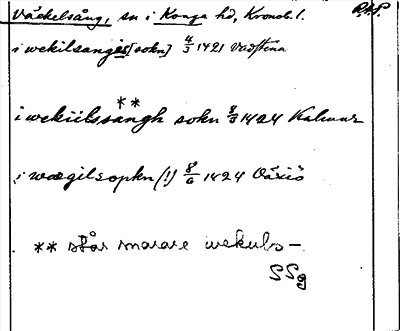 Väckelsång, sn i Konga hd, Kronob. l. RAP.
i wekilsangis [sokn] 4/3 1421 Vadstena
i wekiilssangh ** sokn 8/3 1424 Kalmar
i wægilsopkn (!) 8/6 1424 Växiö
** står snarare wekuls-
SSg